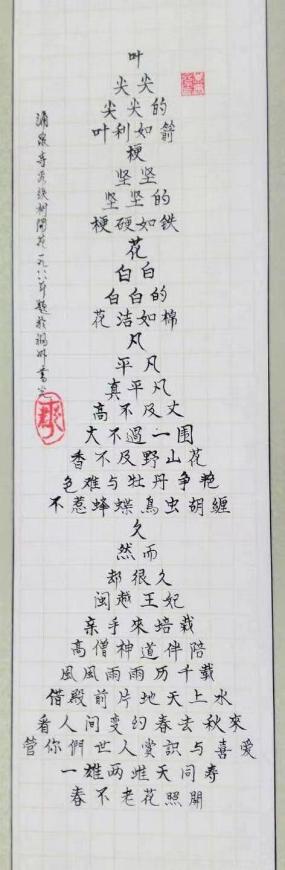 叶
尖尖
尖尖的
叶利如箭
梗
坚坚
坚坚的
梗硬如铁
花
白白
白白的
花洁如棉
凡
平凡
真平凡
高不及丈
大不過一围
香不及野山花
色难与牡丹争艳
不惹蜂蝶鸟虫胡缠
久
然而
却很久
闽越王妃
亲手來培栽
高僧神道伴陪
風風雨雨历千载
借殿前片地天上水
看人间变幻春去秋來
管你們世人赏識与喜愛
一雄两雌天同寿
春不老花照開
涌泉寺观铁树開花一九八八年题於福州